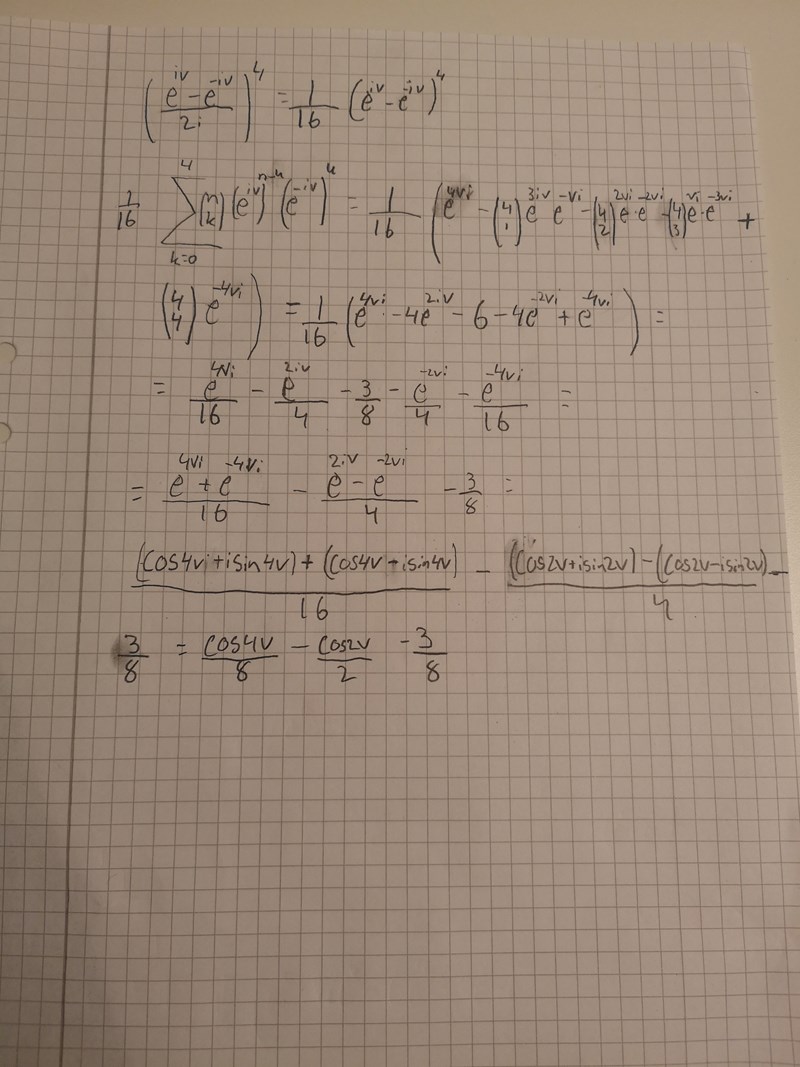 ((e^{iv} - e^{-iv})/2i)^4 = 1/16 (e^{iv} - e^{-iv})^4
1/16 ∑_{k=0}^{4} (n k) (e^{iv})^{n-k} (e^{-iv})^k = 1/16 (e^{4vi} - (4 1) e^{3iv} e^{-vi} - (4 2) e^{2vi} · e^{-2vi} - (4 3) e^{vi} · e^{-3vi} +
(4 4) e^{-4vi}) = 1/16 (e^{4vi} - 4e^{2iv} - 6 - 4e^{-2vi} + e^{-4vi}) =
= e^{4vi}/16 - e^{2iv}/4 - 3/8 - e^{-2vi}/4 - e^{-4vi}/16 =
= (e^{4vi} + e^{-4vi})/16 - (e^{2iv} - e^{-2vi})/4 - 3/8 =
((cos4vi + isin4v) + (cos4v + isin4v))/16 - ((cos2v + isin2v) - (cos2v - isin2v))/4 -
3/8 = cos4v/8 - cos2v/2 - 3/8